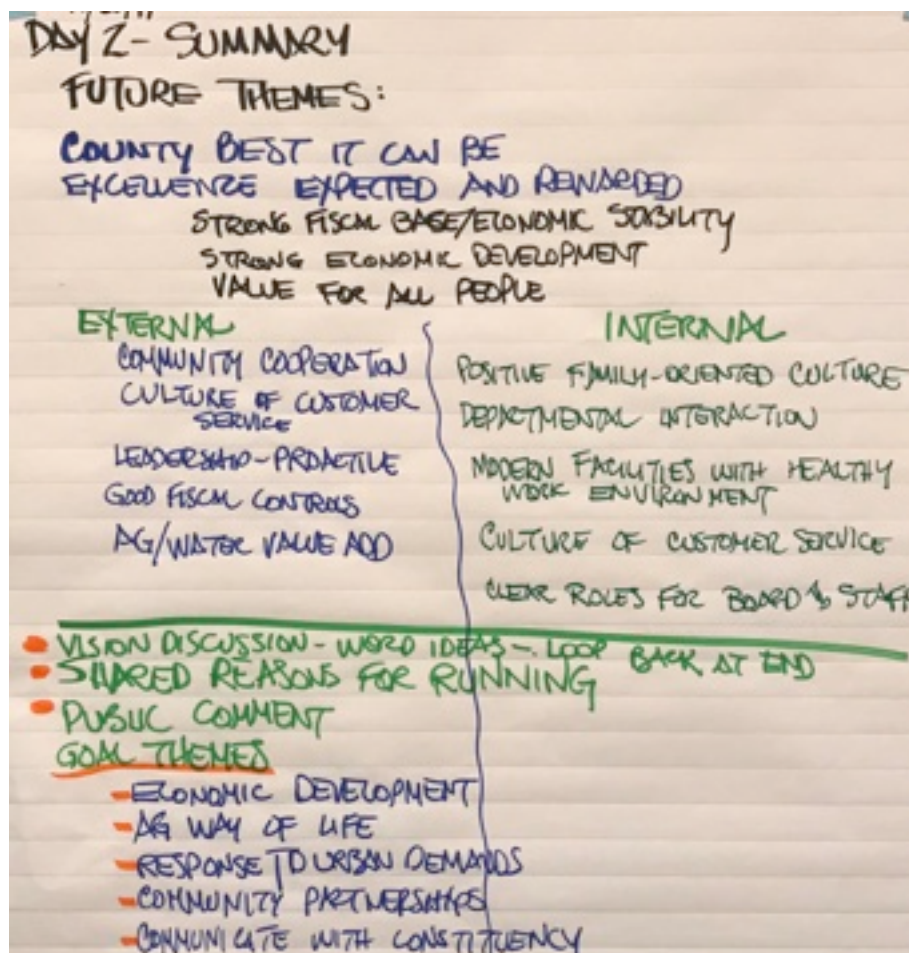 DAY 2 - SUMMARY
FUTURE THEMES:
COUNTY BEST IT CAN BE
EXCELLENCE EXPECTED AND REWARDED
STRONG FISCAL BASE/ECONOMIC STABILITY
STRONG ECONOMIC DEVELOPMENT
VALUE FOR ALL PEOPLE
EXTERNAL
COMMUNITY COOPERATION
CULTURE OF CUSTOMER
SERVICE
LEADERSHIP - PROACTIVE
GOOD FISCAL CONTROLS
AG/WATER VALUE ADD
INTERNAL
POSITIVE FAMILY-ORIENTED CULTURE
DEPARTMENTAL INTERACTION
MODERN FACILITIES WITH HEALTHY
WORK ENVIRONMENT
CULTURE OF CUSTOMER SERVICE
CLEAR ROLES FOR BOARD & STAFF
VISION DISCUSSION - WORD IDEAS - LOOP BACK AT END
SHARED REASONS FOR RUNNING
PUBLIC COMMENT
GOAL THEMES
- ECONOMIC DEVELOPMENT
- AG WAY OF LIFE
- RESPONSE TO URBAN DEMANDS
- COMMUNITY PARTNERSHIPS
- COMMUNICATE WITH CONSTITUENCY